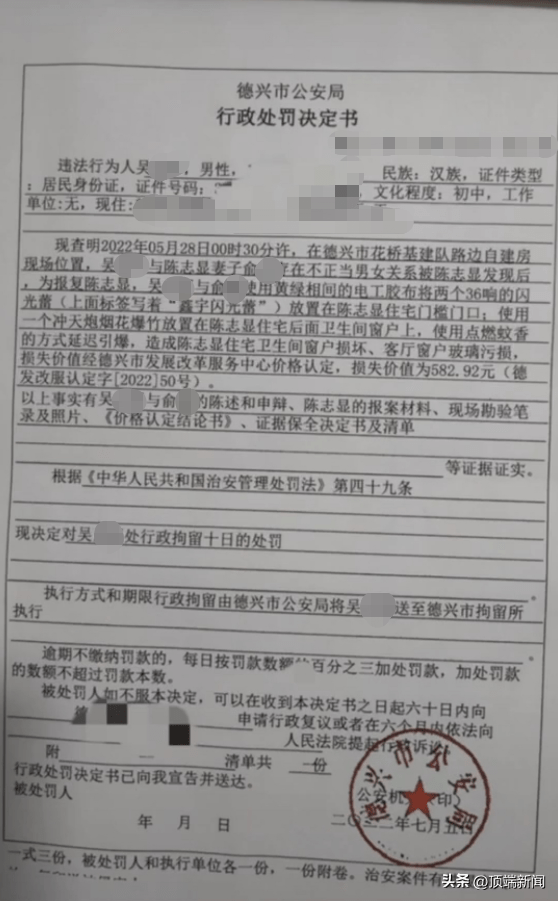 德兴市公安局
行政处罚决定书
违法行为人吴 ，男性， 民族：汉族，证件类型
：居民身份证，证件号码： ，文化程度：初中，工作
单位:无，现住：
现查明2022年05月28日00时30分许，在德兴市花桥基建队路边自建房
现场位置，吴 与陈志显妻子俞 存在不正当男女关系被陈志显发现后
，为报复陈志显，吴 与俞 使用黄绿相间的电工胶布将两个36响的闪
光蕾（上面标签写着“鑫宇闪光蕾”）放置在陈志显住宅门槛门口；使用
一个冲天炮烟花爆竹放置在陈志显住宅后面卫生间窗户上，使用点燃蚊香
的方式延迟引爆，造成陈志显住宅卫生间窗户损坏、客厅窗户玻璃污损，
损失价值经德兴市发展改革服务中心价格认定，损失价值为582.92元（德
发改服认定字[2022]50号）。
以上事实有吴 与俞 的陈述和申辩、陈志显的报案材料、现场勘验笔
录及照片、《价格认定结论书》、证据保全决定书及清单
等证据证实。
根据《中华人民共和国治安管理处罚法》第四十九条
现决定对吴 处行政拘留十日的处罚
执行方式和期限行政拘留由德兴市公安局将吴 送至德兴市拘留所
执行
逾期不缴纳罚款的，每日按罚款数额的百分之三加处罚款，加处罚款
的数额不超过罚款本数。
被处罚人如不服本决定，可以在收到本决定书之日起六十日内向
申请行政复议或者在六个月内依法向
人民法院提起行政诉讼。
附 清单共 份
行政处罚决定书已向我宣告并送达。
被处罚人 公安机 印）
年 月 日 二〇二二年七月五日
德兴市公安局
一式三份，被处罚人和执行单位各一份，一份附卷。治安案件有
头条 @顶端新闻